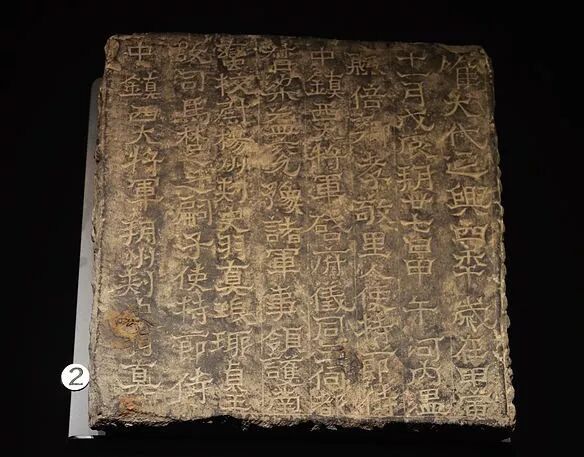 唯大代延興四年歲在甲寅
十一月戊辰朔廿七日甲午河內溫
縣倍鄉孝敬里人使持節侍
中鎮西大將軍啓府儀同三司都
督梁益兗豫諸軍事領護南
蠻校尉揚州刺史羽真琅琊貞王
故司馬楚之嗣子使持節侍
中鎮西大將軍朔州刺史羽真
2